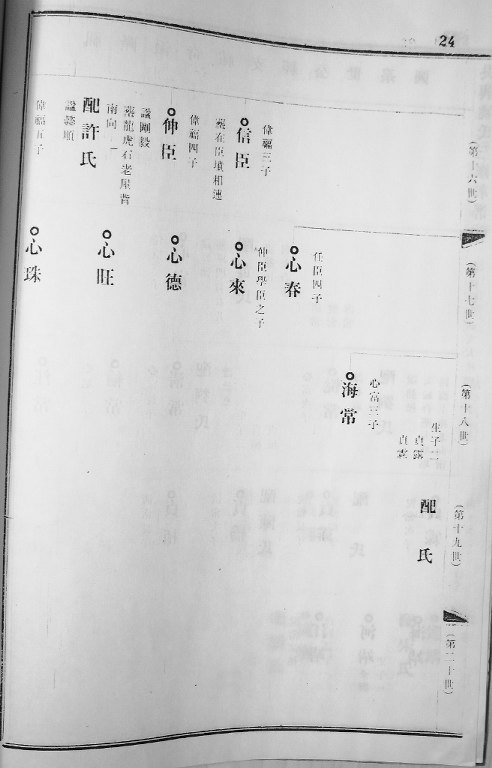 24
(第十六世)
偉福三子
信臣
葬在臣墳相連
偉福四子
仲臣
諡剛毅
葬龍虎石老屋背
南向
配許氏
偉福五子
(第十七世)
任臣四子
心春
仲臣學臣之子
心來
心德
心旺
心珠
(第十八世)
生子二
貞露
貞雲
心富三子
海常
(第十九世)
配氏
(第二十世)